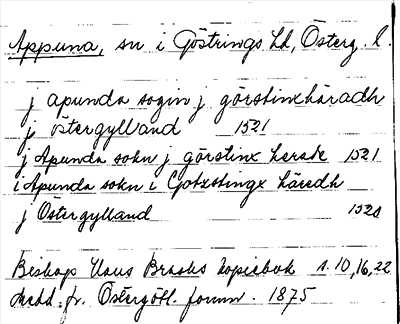 Appuna, sn i Göstrings hd, Österg. l.
j apunda sogin j görstinxhäradh
j östergylland 1521
j Apunda sokn j görstinx herade 1521
i Apunda sokn i Gotzstingx häredh
j Östergylland 1521
Biskop Claus Brasks kopiebok s. 10, 16, 22
Medd. fr. Östergötl. fornm. 1875